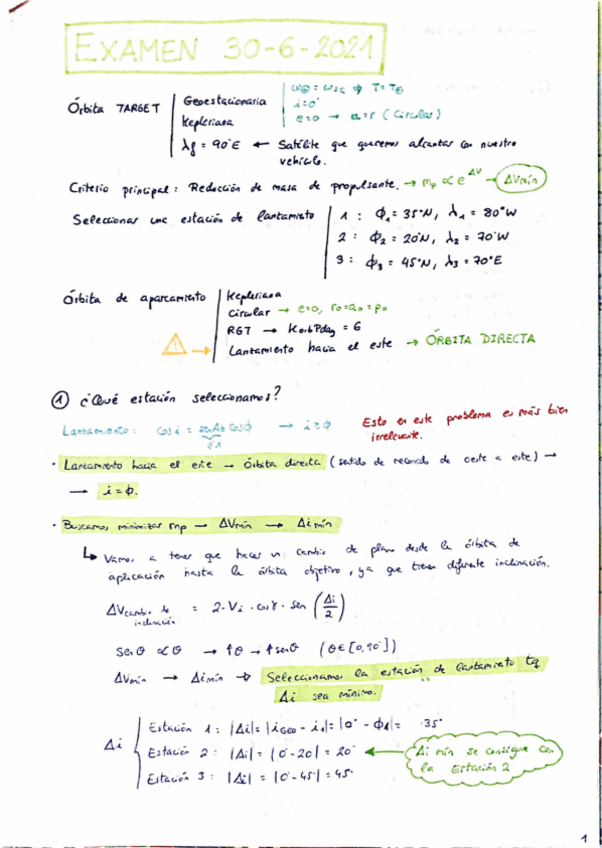 EXAMEN 30-6-2021
Órbita TARGET
Geoestacionaria
Kepleriana
λf = 90°E ← Satélite que queremos alcanzar con nuestro
vehículo.
ω⊕ = ωsc ⇒ T = T⊕
i = 0°
e = 0 → a = r (Circular)
Criterio principal: Reducción de masa de propulsante. → mp ∝ e^ΔV → ΔVmín
Seleccionar una estación de lanzamiento
1: Φ1 = 35°N, λ1 = 80°W
2: Φ2 = 20°N, λ2 = 70°W
3: Φ3 = 45°N, λ3 = 70°E
Órbita de aparcamiento
Kepleriana
Circular → e=0, r0=a0=p0
RGT → KorbPday = 6
Lanzamiento hacia el este → ÓRBITA DIRECTA
① ¿Qué estación seleccionamos?
Lanzamiento: cos i = sen Az cos Φ → i ≥ Φ
≤1
Esto en este problema es más bien
irrelevante.
· Lanzamiento hacia el este → Órbita directa (sentido de recorrido de oeste a este) →
→ i = Φ.
· Buscamos minimizar mp → ΔVmín → Δi mín
↳ Vamos a tener que hacer un cambio de plano desde la órbita de
aplicación hasta la órbita objetivo, ya que tienen diferente inclinación.
ΔVcambio de inclinación = 2·Vi·cosγ·sen(Δi/2)
Senθ ∝ θ → ↑θ → ↑senθ (θ∈[0,90°])
ΔVmín → Δi mín → Seleccionamos la estación de lanzamiento tq
Δi sea mínimo.
Δi
Estación 1: |Δi| = |iGEO - i1| = |0° - Φ1| = 35°
Estación 2: |Δi| = |0-20| = 20°
Estación 3: |Δi| = |0-45| = 45°
Δi mín se consigue con
la Estación 2
1